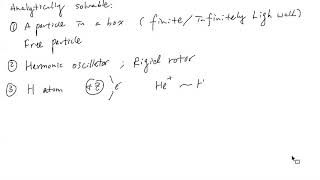 Analytically solvable:
① A particle in a box (finite/Infinitely high wall)
Free particle
② Harmonic oscillator ; Rigid rotor
③ H atom +Z e He⁺ ~ H